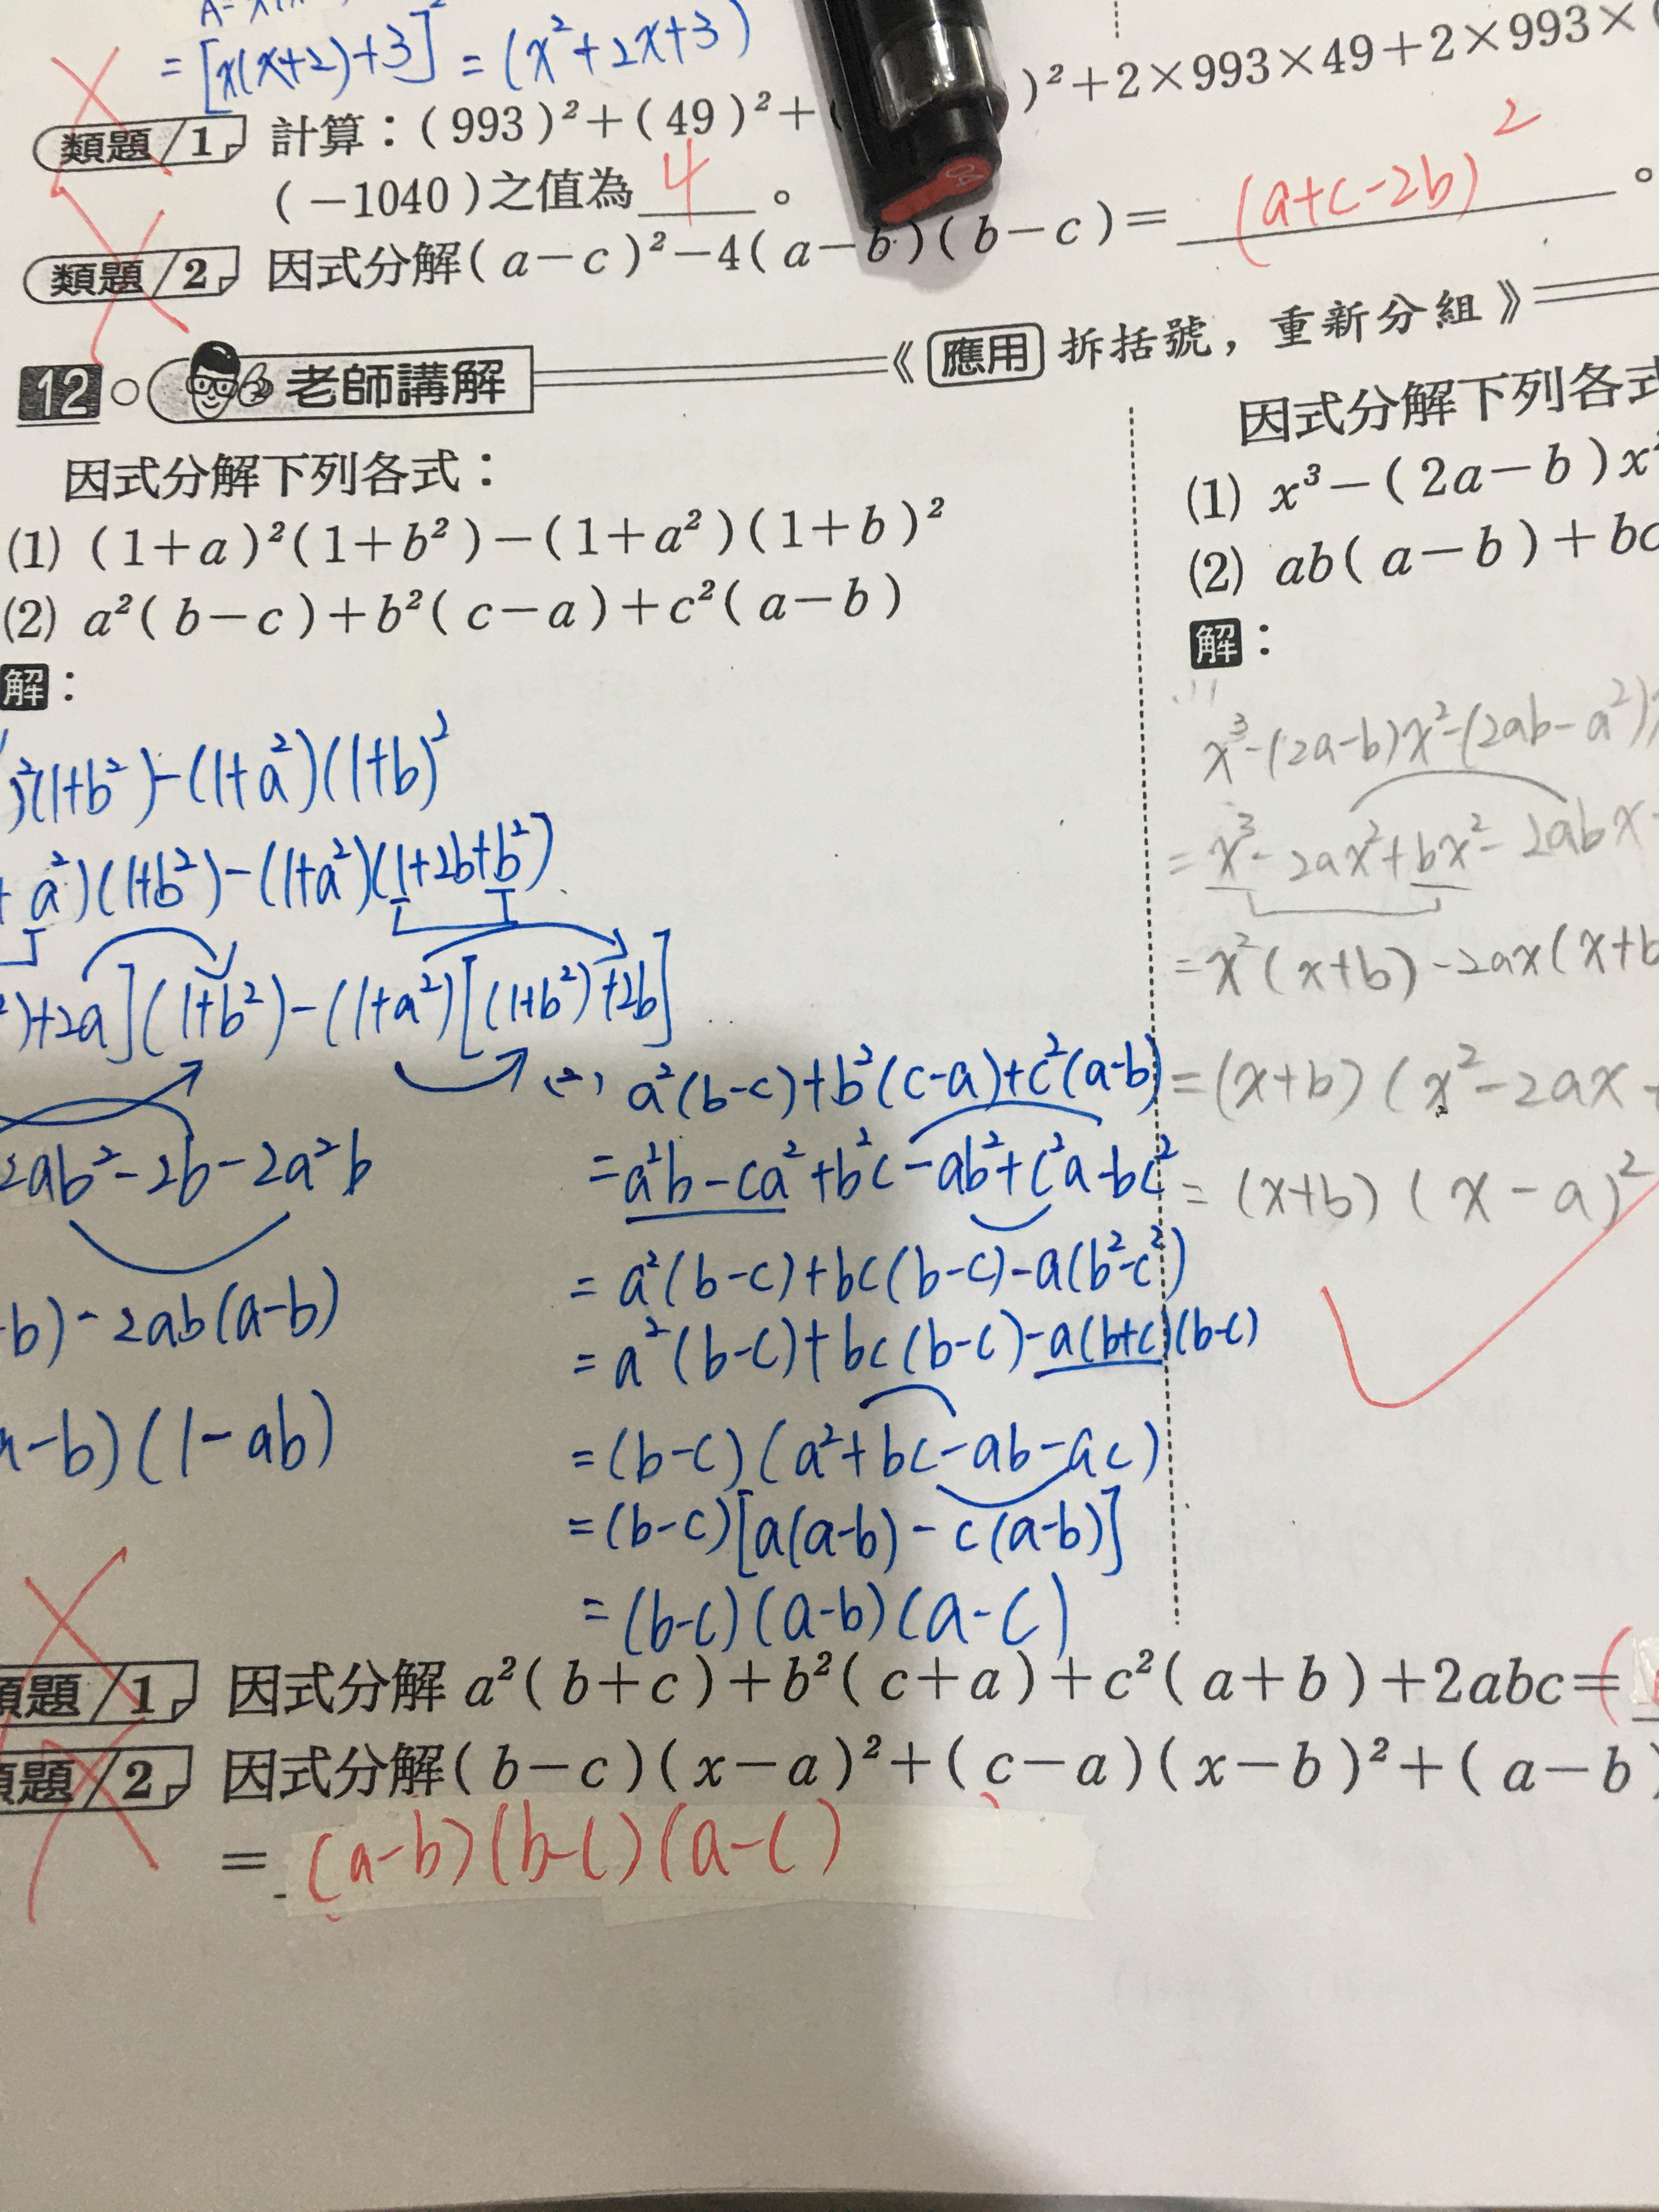 = [x(x+2)+3]² = (x²+2x+3)
類題/1 計算：(993)²+(49)²+( )²+2×993×49+2×993×
(−1040)之值為 4 。
類題/2 因式分解(a−c)²−4(a−b)(b−c)= (a+c−2b)² 。
12 老師講解 《應用 拆括號，重新分組》
因式分解下列各式：
(1) (1+a)²(1+b²)−(1+a²)(1+b)²
(2) a²(b−c)+b²(c−a)+c²(a−b)
解：
)²(1+b²)−(1+a²)(1+b)²
+a²)(1+b²)−(1+a²)(1+2b+b²)
²)+2a](1+b²)−(1+a²)[(1+b²)+2b]
2ab²−2b−2a²b
b)−2ab(a−b)
a−b)(1−ab)
(2) a²(b−c)+b²(c−a)+c²(a−b)
=a²b−ca²+b²c−ab²+c²a−bc²
= a²(b−c)+bc(b−c)−a(b²−c²)
= a²(b−c)+bc(b−c)−a(b+c)(b−c)
=(b−c)(a²+bc−ab−ac)
=(b−c)[a(a−b)−c(a−b)]
=(b−c)(a−b)(a−c)
因式分解下列各式
(1) x³−(2a−b)x²
(2) ab(a−b)+bc
解：
x³−(2a−b)x²−(2ab−a²)x
= x³−2ax²+bx²−2abx
=x²(x+b)−2ax(x+b
=(x+b)(x²−2ax+
=(x+b)(x−a)²
類題/1 因式分解 a²(b+c)+b²(c+a)+c²(a+b)+2abc=(
類題/2 因式分解(b−c)(x−a)²+(c−a)(x−b)²+(a−b)
= (a−b)(b−c)(a−c)